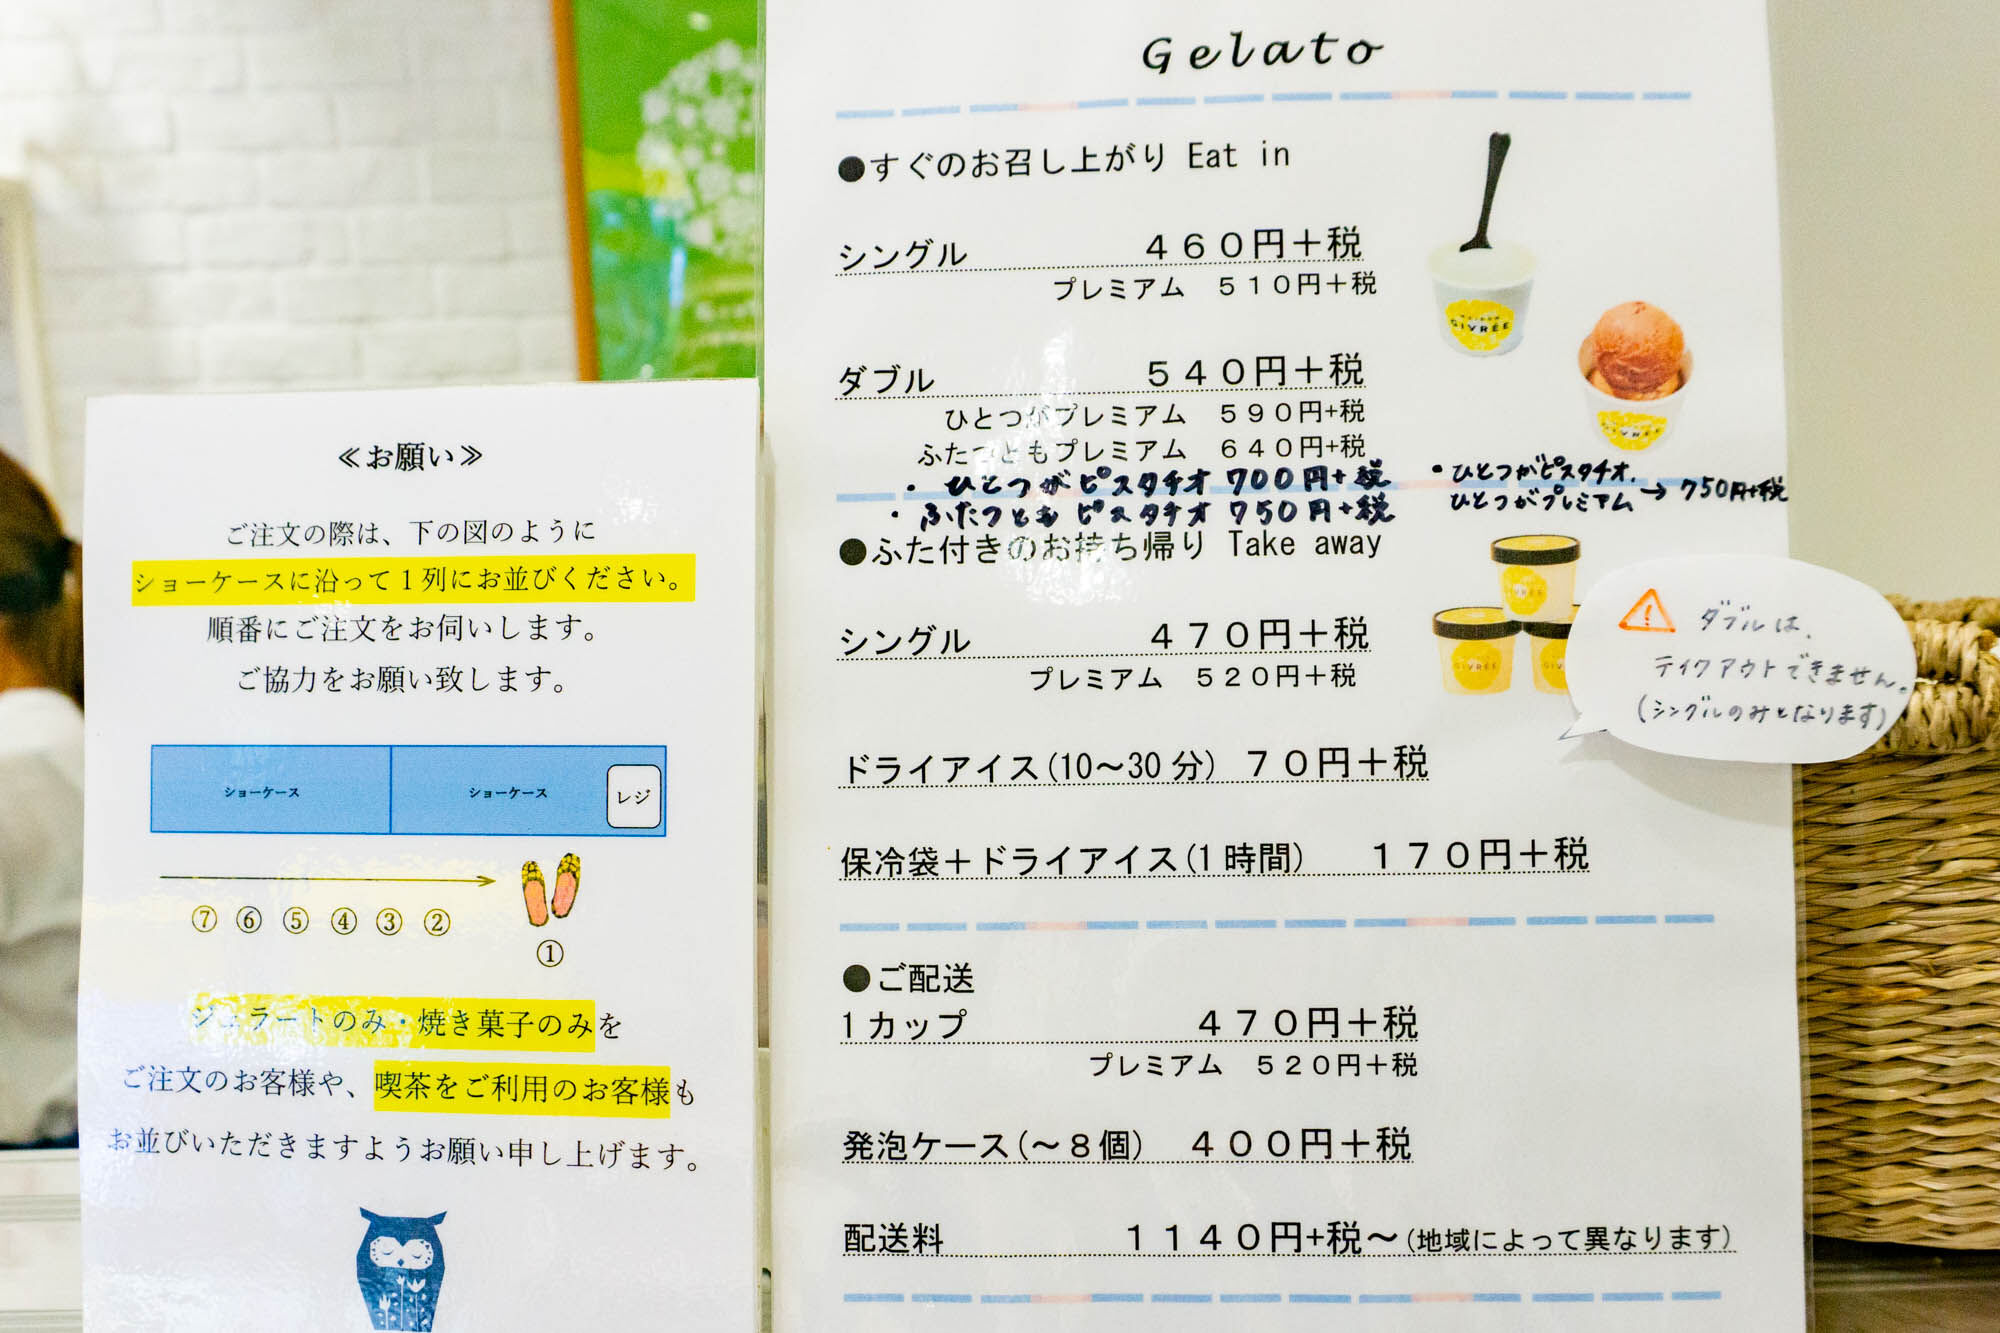 ≪お願い≫
ご注文の際は、下の図のように
ショーケースに沿って1列にお並びください。
順番にご注文をお伺いします。
ご協力をお願い致します。
ショーケース ショーケース レジ
⑦ ⑥ ⑤ ④ ③ ② ①
ジェラートのみ・焼き菓子のみを
ご注文のお客様や、喫茶をご利用のお客様も
お並びいただきますようお願い申し上げます。
Gelato
●すぐのお召し上がり Eat in
シングル 460円＋税
プレミアム 510円＋税
ダブル 540円＋税
ひとつがプレミアム 590円+税
ふたつともプレミアム 640円+税
・ひとつがピスタチオ 700円+税
・ふたつとも ピスタチオ 750円+税
・ひとつがピスタチオ.
ひとつがプレミアム → 750円+税
MAISON
GIVRÉE
GIVRÉE
●ふた付きのお持ち帰り Take away
シングル 470円＋税
プレミアム 520円＋税
GIVRÉE
GIVRÉE
ダブルは、
テイクアウトできません。
(シングルのみとなります)
ドライアイス(10～30分) 70円＋税
保冷袋＋ドライアイス(1時間) 170円＋税
●ご配送
1カップ 470円＋税
プレミアム 520円＋税
発泡ケース(～8個) 400円＋税
配送料 1140円+税～(地域によって異なります)